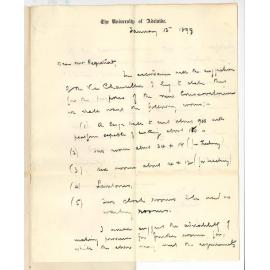 The University of Adelaide.
January 15th 1898
Dear Mr
In accordance with the suggestion
of the Vice Chancellor I beg to state that
for the purposes of the new
we shall need the following rooms:-
(1) A large hall to seat about 900 with
platform capable of seating about
(2) one room about 34 x 18 (for)
(3) one room about 24 x 12 (for)
(4) Lavatories.
(5) Two cloak rooms to be used as
waiting rooms.
I would suggest the advisability of
making provision for further rooms, for
while the above meet the requirements